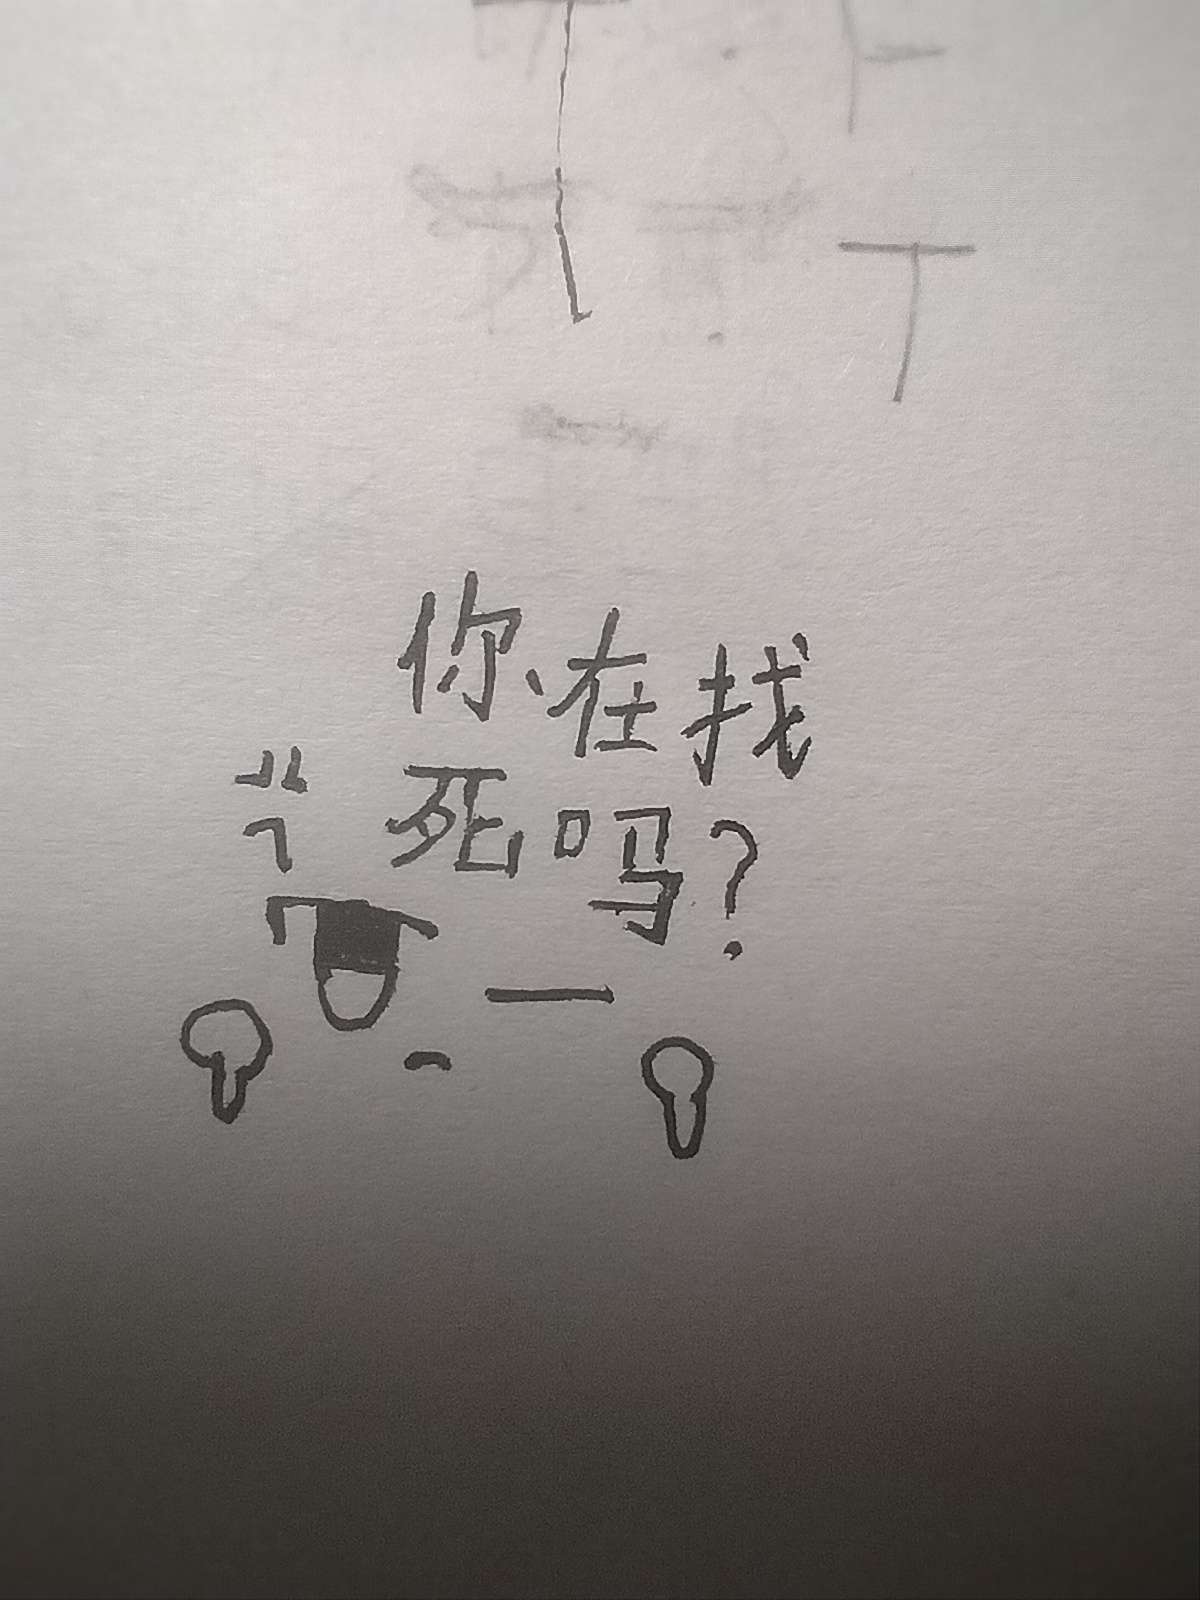 你在找
死吗?